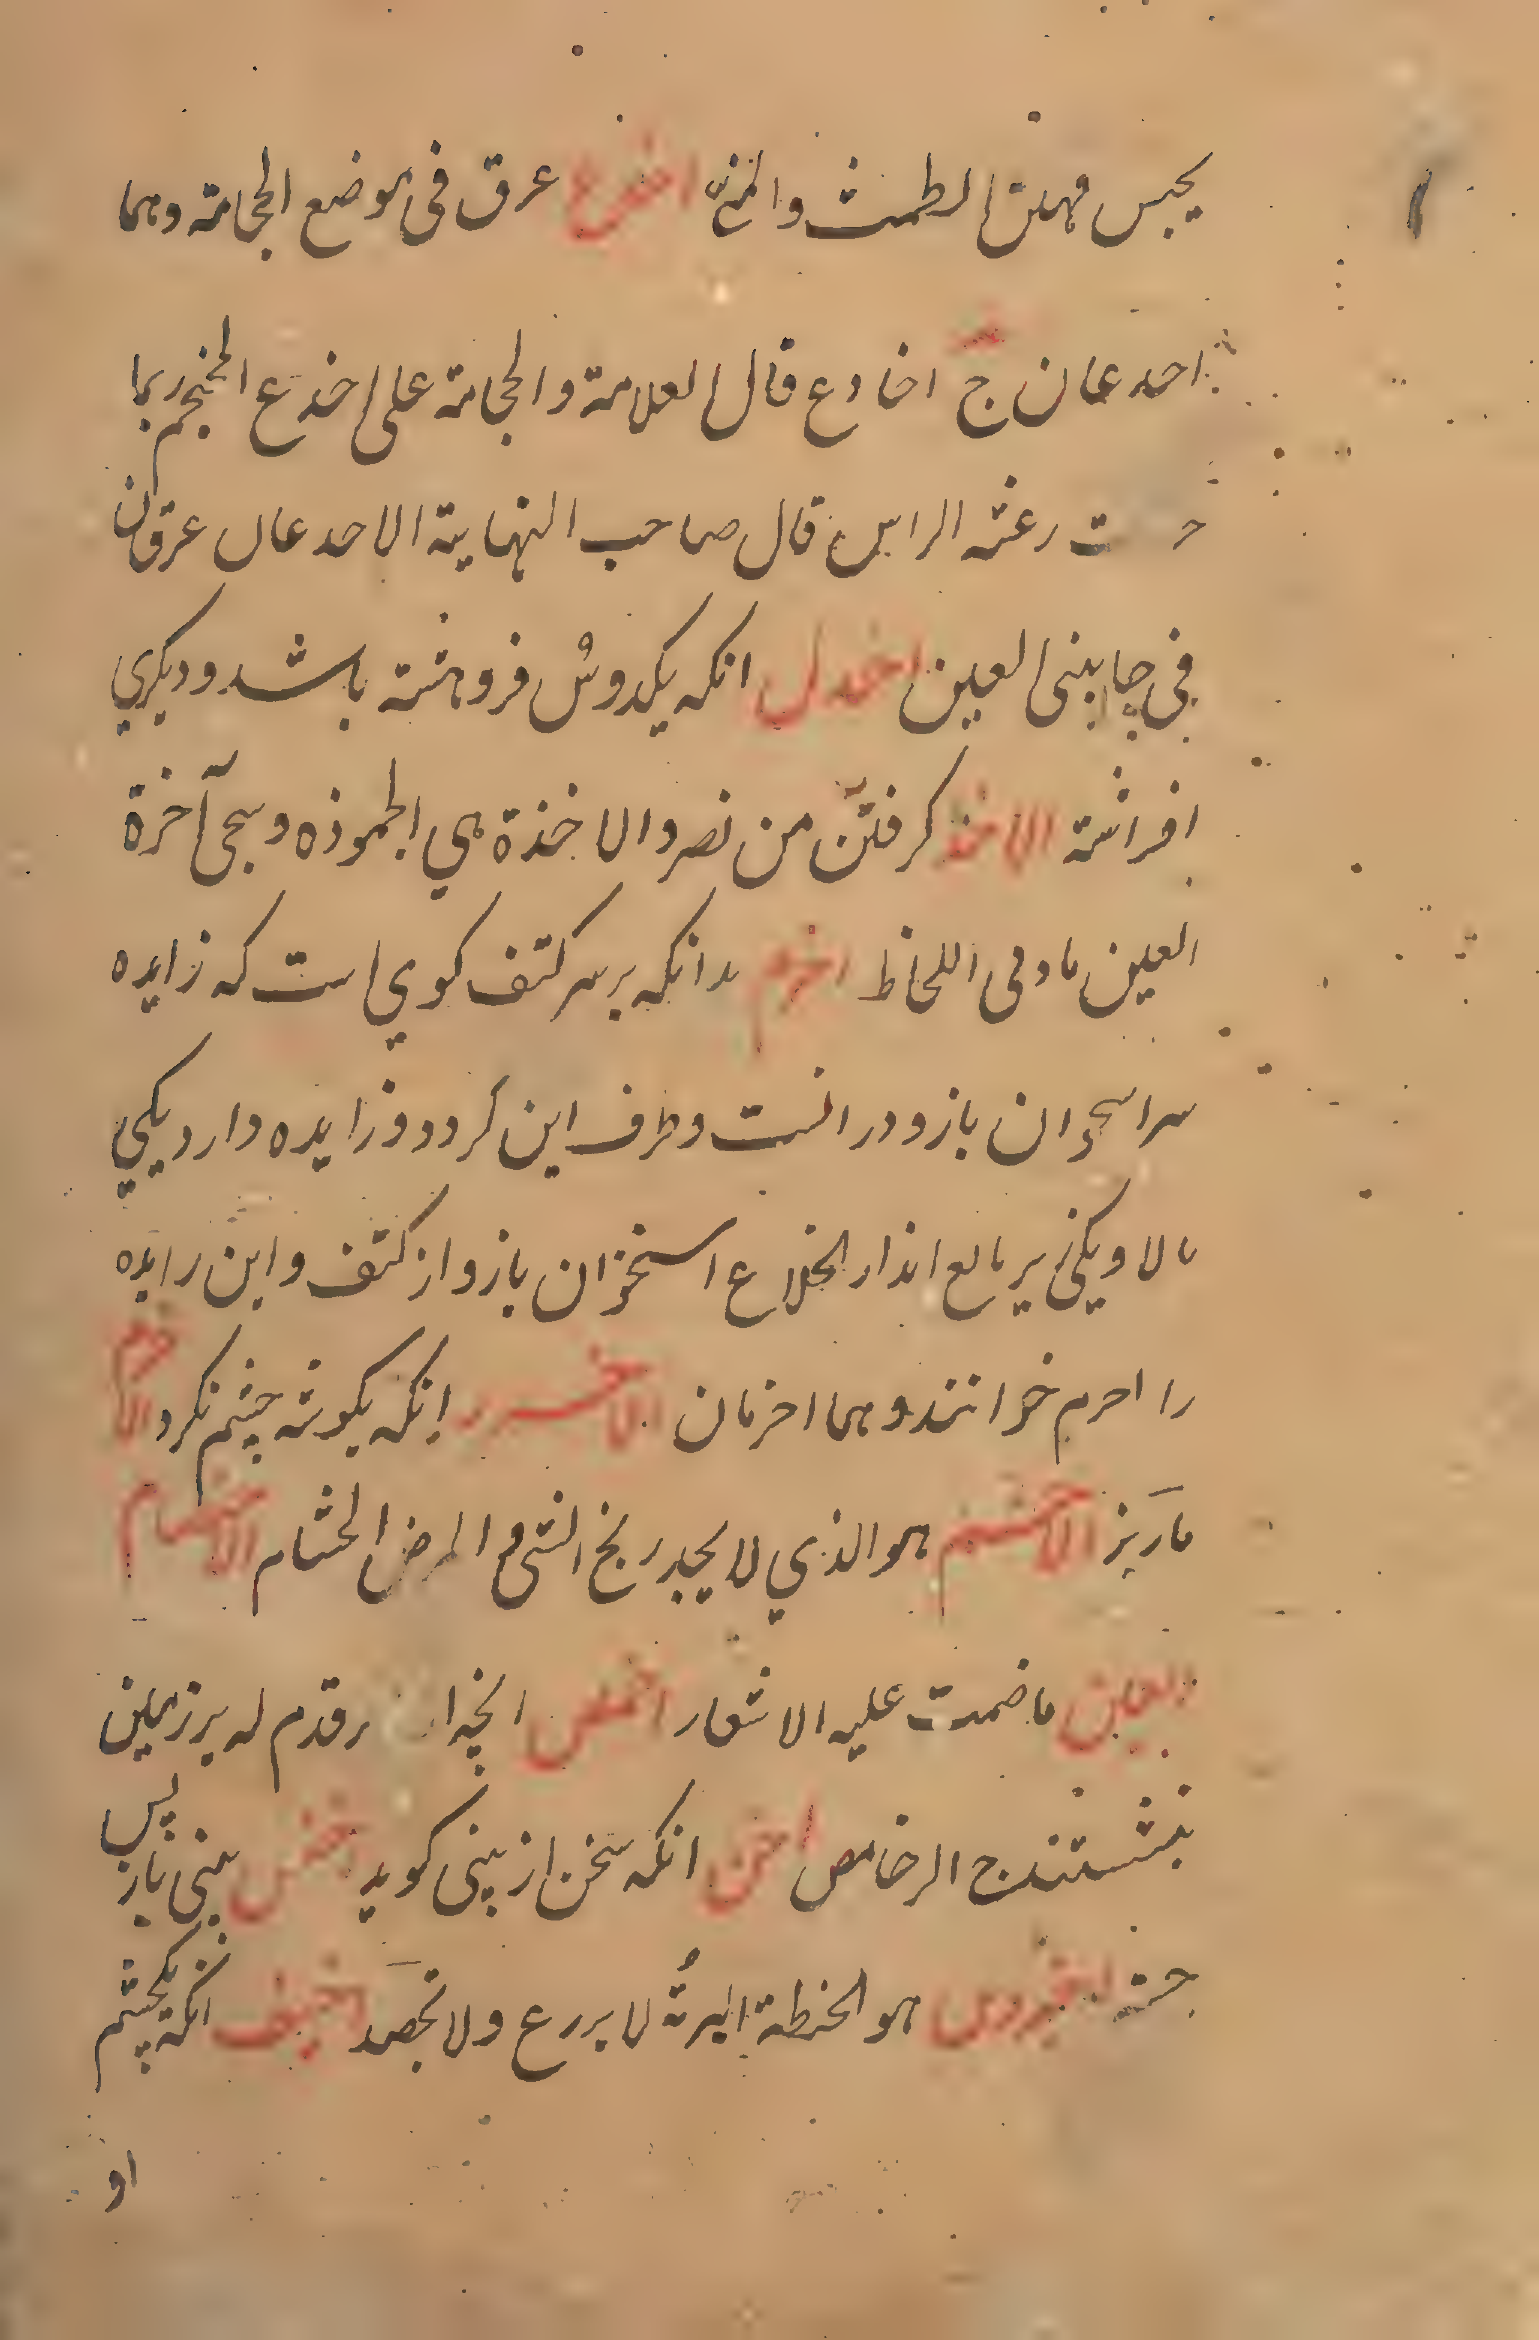 يحبس فهلتا الطمث والمنيّ اخدع عرق في موضع الحجامة وهما
اخدعان ج اخادع قال العلامة والحجامة على اخدع الخنجم ربما
رعشه الراس قال صاحب النهاية الاخدعان عرقان
في جانبي العين اخدل انكه يكدوش فروهشته باشد وديكري
افراشته الاخذ كرفتن من نصر والاخذة هي الجموذه وسجى آخرة
العين مادمى اللحاظ اخرم بدانكه برسر كتف كوي است كه زايده
سر استخوان بازو در انست وطرف اين كردد وزايده دارد يكي
بالا ويكي زير مانع انداز انخلاع استخوان بازو از كتف واين زايده
را اخرم خوانند وهما اخرمان الاخزر انكه بكوشه چشم نكرد الاخرم
ماريز الاخشم هو الذي لا يجد ريح الشي والمرض الخشام الاخصام
العين ما ضمت عليه الاشفار اخمص انچه از قدم كه بر زمين
ننشيند ج الرخامص اخن انكه سخن از بيني كويد اخنس بيني باز پس
جسته اخيروس هو الحنطة البرية لا يزرع ولا تحصد اخيف انكه يكچشم
او